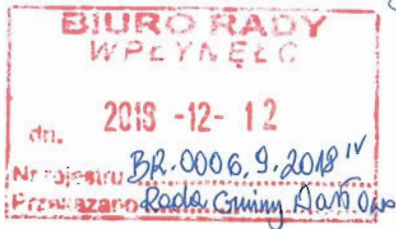 BIURO RADY
WPŁYNĘŁO
dn. 2018 -12- 12
Nr rejestru BR.0006.9.2018 IV
Przekazano Rada Gminy